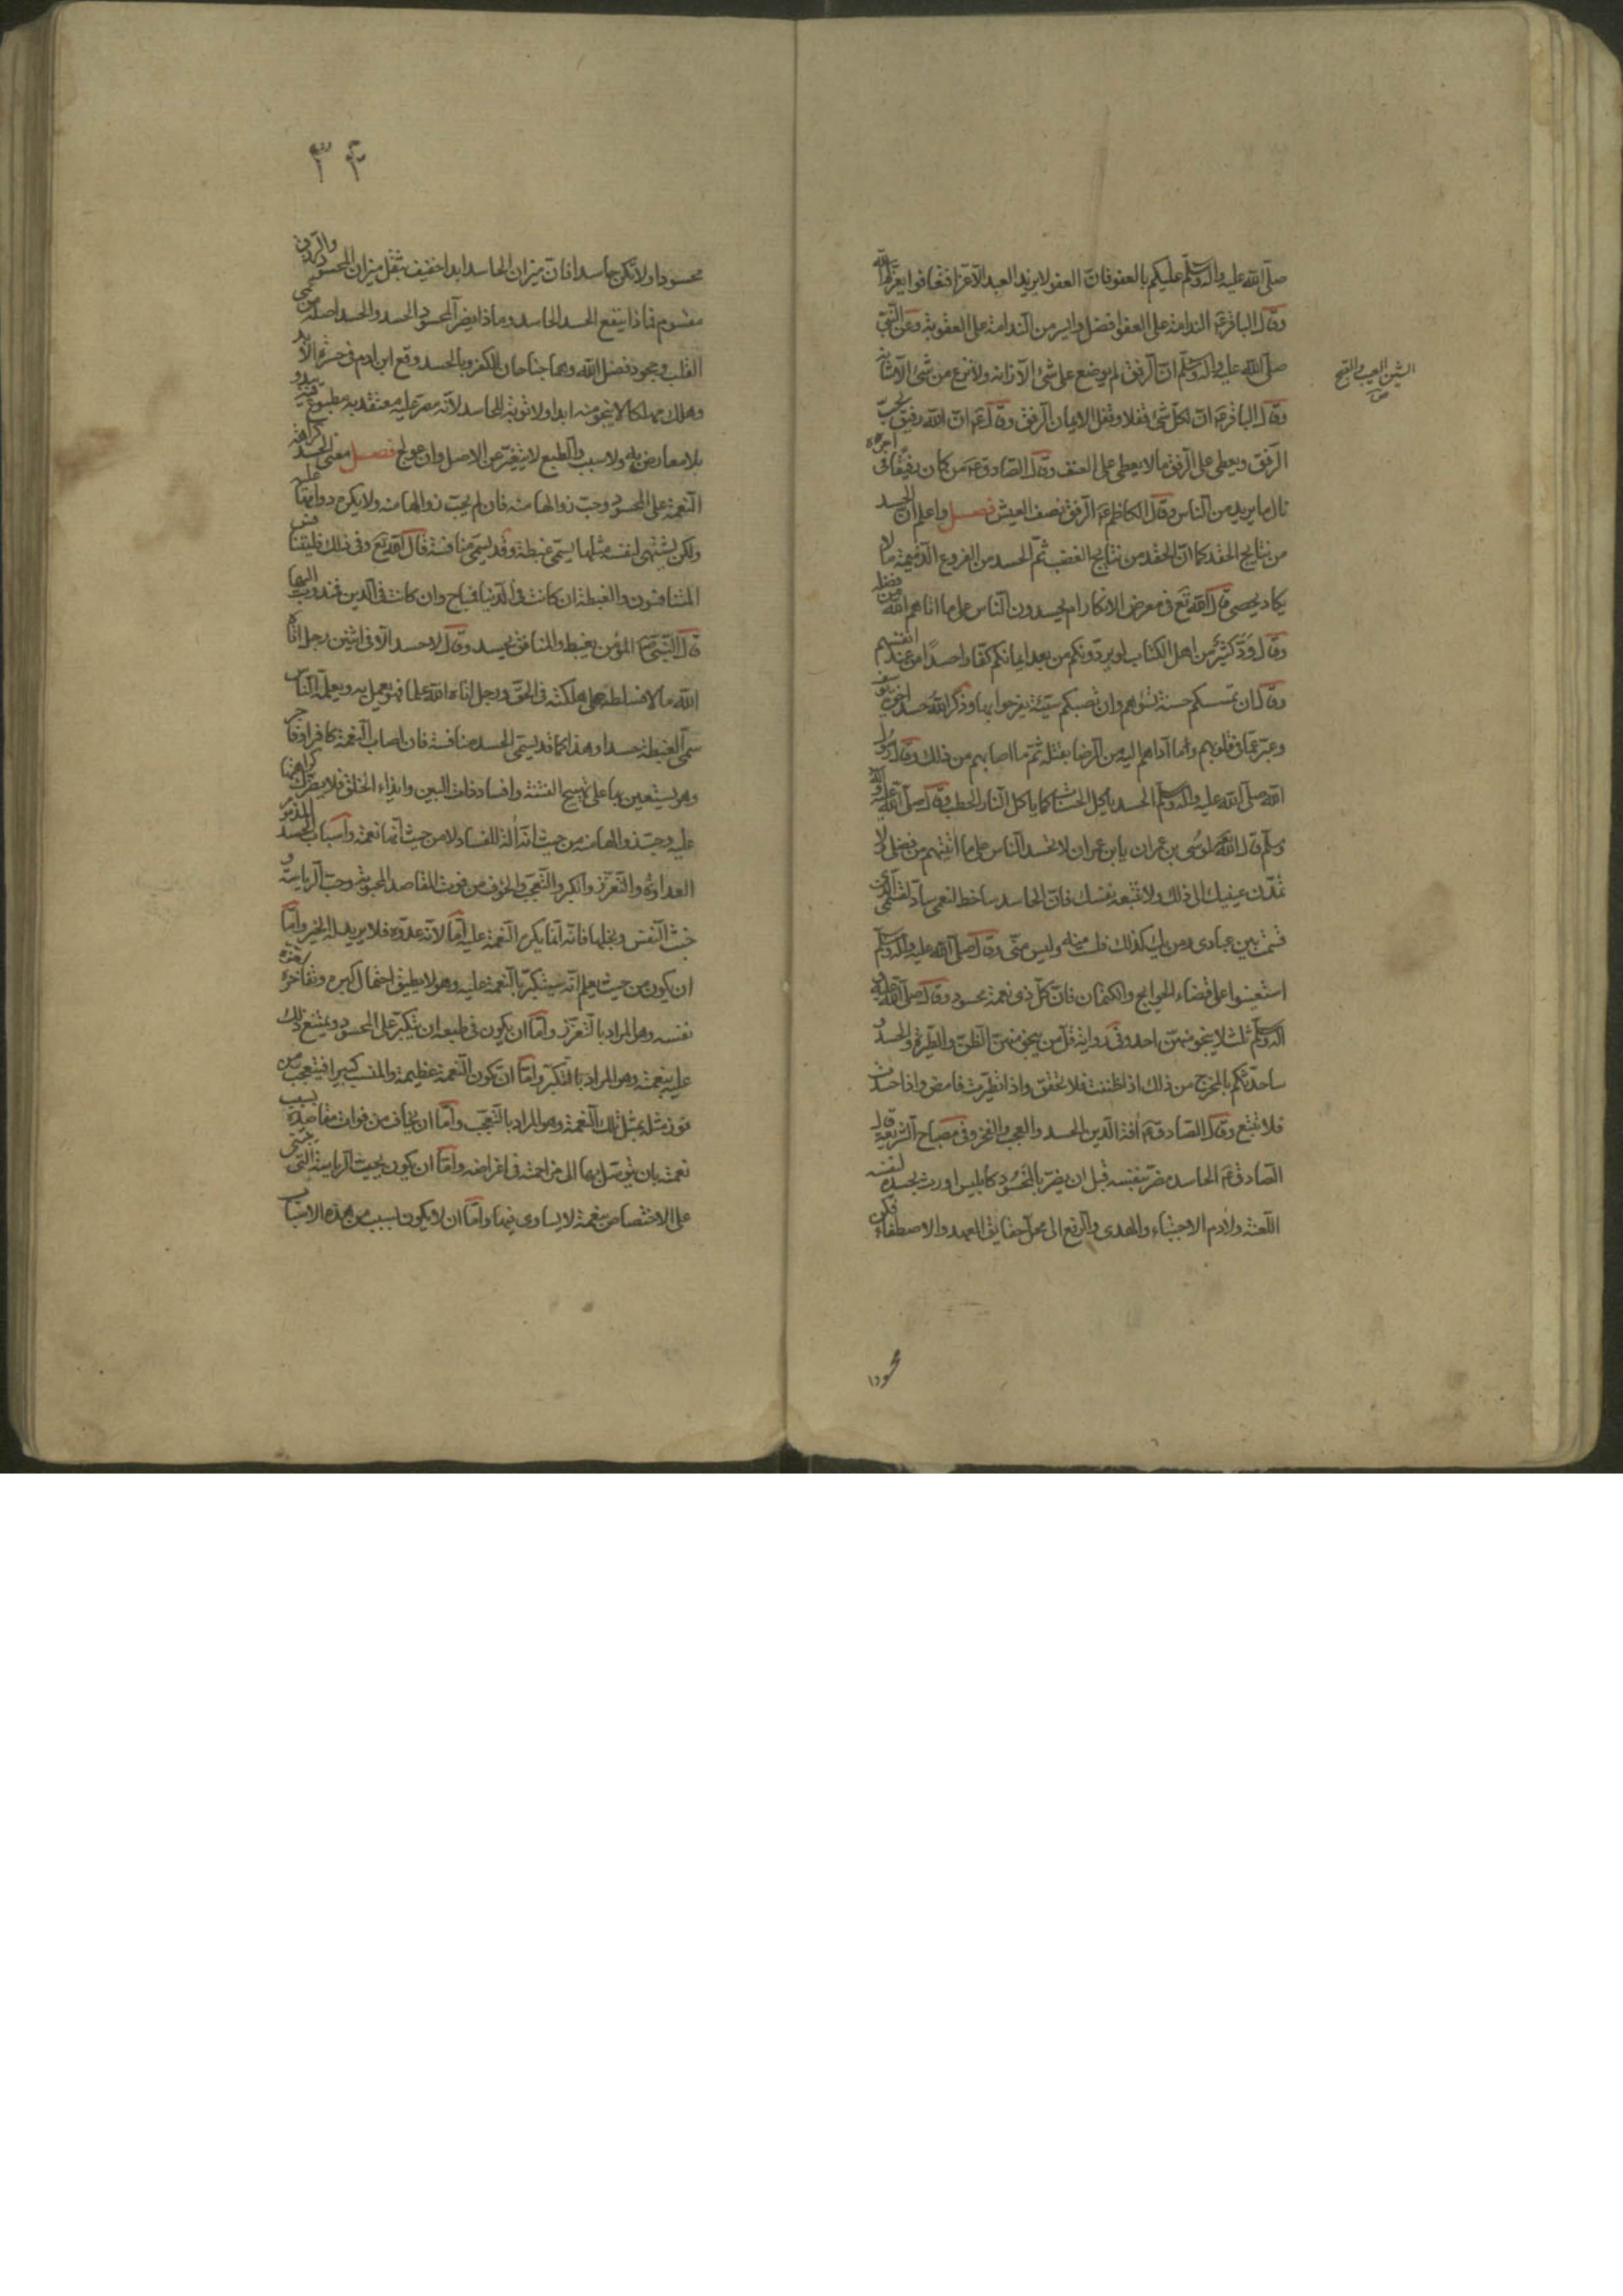 صلّى الله عليه واله وسلّم عليكم بالعفو فانّ العفو لا يزيد العبد الاّ عزّا فتعافوا يعزّكم الله
وقال الباقر ع الندامة على العفو افضل وايسر من الندامة على العقوبة وعن النّبيّ
صلّى الله عليه واله وسلّم انّ الرفق لم يوضع على شئ الاّ زانه ولا نزع من شئ الاّ شانه
وقال الباقر ع انّ لكلّ شئ قفلا وقفل الايمان الرفق وقال ع انّ الله رفيق يحبّ
الرّفق ويعطى على الرفق ما لا يعطى على العنف وقال الصّادق ع من كان رفيقًا فى امره
نال ما يريد من النّاس وقال الكاظم ع الرفق نصف العيش فصل واعلم انّ الحسد
من نتايج الحقد كما انّ الحقد من نتايج الغضب ثمّ الحسد من الفروع الذميمة ما لا
يكاد يحصى قال الله تع فى معرض الانكار ام يحسدون النّاس على ما اتاهم الله من فضله
وقال ودّ كثير من اهل الكتاب لو يردّونكم من بعد ايمانكم كفّارا حسدًا من عند انفسهم
وقال ان تمسسكم حسنة تسؤهم وان تصبكم سيّئة يفرحوا بها وذكر الله حسد اخوة يوسف
وعبّر عمّا فى قلوبهم وما ادّاهم اليه من الرضا بقتله ثمّ ما اصابهم من ذلك وقال رسول
الله صلّى الله عليه واله وسلّم الحسد ياكل الحسنات كما ياكل النّار الحطب وقال صلّى الله عليه واله
وسلّم قال الله لموسى بن عمران يا بن عمران لا تحسد النّاس على ما اتيتهم من فضلى ولا
تمدّنّ عينيك الى ذلك ولا تتبعه نفسك فانّ الحاسد ساخط لنعمى صادّ لقسمى الّذى
قسمت بين عبادى ومن يك كذلك فلست منه وليس منّى وقال صلّى الله عليه واله وسلّم
استعينوا على قضاء الحوايج بالكتمان فانّ كلّ ذى نعمة محسود وقال صلّى الله عليه و
اله وسلّم ثلث لا ينجو منهنّ احد وفى رواية قلّ من ينجو منهنّ الظنّ والطيرة والحسد و
ساحدّثكم بالمخرج من ذلك اذا ظننت فلا تحقّق واذا تطيّرت فامض واذا حسدت
فلا تبغ وقال الصّادق ع افة الدّين الحسد والعجب والفخر وفى مصباح الشريعة قال
الصّادق ع الحاسد مضرّ بنفسه قبل ان يضرّ بالمحسود كابليس اورث بحسده لنفسه
اللّعنة ولآدم الاجتباء والهدى والرفع الى محلّ حقايق العهد والاصطفاء فكن
الشين العيب والقبح
ص
محسودا
٣٤
محسودا ولا تكن حاسدا فانّ ميزان الحاسد ابدا خفيف بثقل ميزان المحسود والرزق
مقسوم فماذا ينفع الحسد الحاسد وماذا يضرّ المحسود الحسد والحسد اصله من عمى
القلب وجحود فضل الله وهما جناحان للكفر وبالحسد وقع ابن ادم فى حسرة الابد
وهلك مهلكا لا ينجو منه ابدا ولا توبة للحاسد لانّه مصرّ عليه معتقد به مطبوع فيه يبدو
بلا معارض به ولا سبب والطبع لا يتغيّر عن الاصل وان عولج فصل معنى الحسد كراهة
النّعمة على المحسود وحبّ زوالها منه فان لم يحبّ زوالها منه ولا يكره دوامها عليه
ولكن يشتهى لنفسه مثلها يسمّى غبطة وقد يسمّى منافسة قال الله تع وفى ذلك فليتنافس
المتنافسون والغبطة ان كانت فى الدّنيا فمباح وان كانت فى الّدين فمندوب اليها
قال النّبى ص المؤمن يغبط والمنافق يحسد وقال لا حسد الاّ فى اثنين رجل اتاه
الله مالا فسلّطه على هلكته فى الحقّ ورجل اتاه الله علما فهو يعمل به ويعلّمه النّاس
سمّى الغبطة حسدا وهذا كما قد يسمّى الحسد منافسة فان اصاب النّعمة كافر او فاجر
وهو يستعين بها على تهييج الفتنة وافساد ذات البين وايذاء الخلق فلا يضرّك كراهتها
عليه وحبّ زوالها منه من حيث انّه آلة للفساد لا من حيث انّها نعمة واسباب الحسد المذموم
العداوة والتّعزّز والكبر والتّعجّب والخوف من فوت المقاصد المحبوبة وحبّ الرياسة و
خبث النّفس وبخلها فانّه انّما يكره النّعمة عليه امّا لانّه عدوّه فلا يريد له الخير وامّا
ان يكون من حيث يعلم انّه سيتكبّر بالنّعمة عليه وهو لا يطيق احتمال كبره وتفاخره لعزّة
نفسه وهو المراد بالتّعزّز وامّا ان يكون فى طبعه ان يتكبّر على المحسود ويمتنع ذلك
عليه بنعمته وهو المراد بالتكبّر وامّا ان تكون النّعمة عظيمة والمنصب كبيرا فيتعجّب من
فوز مثله بمثل تلك النّعمة وهو المراد بالتّعجّب وامّا ان يخاف من فوات مقاصده بسبب
نعمته بان يتوصّل بها الى مزاحمته فى اغراضه وامّا ان يكون يحبّ الرياسة الّتى تبتنى
على الاختصاص بنعمة لا يساوى فيها وامّا ان لا يكون بسبب من هذه الاسباب